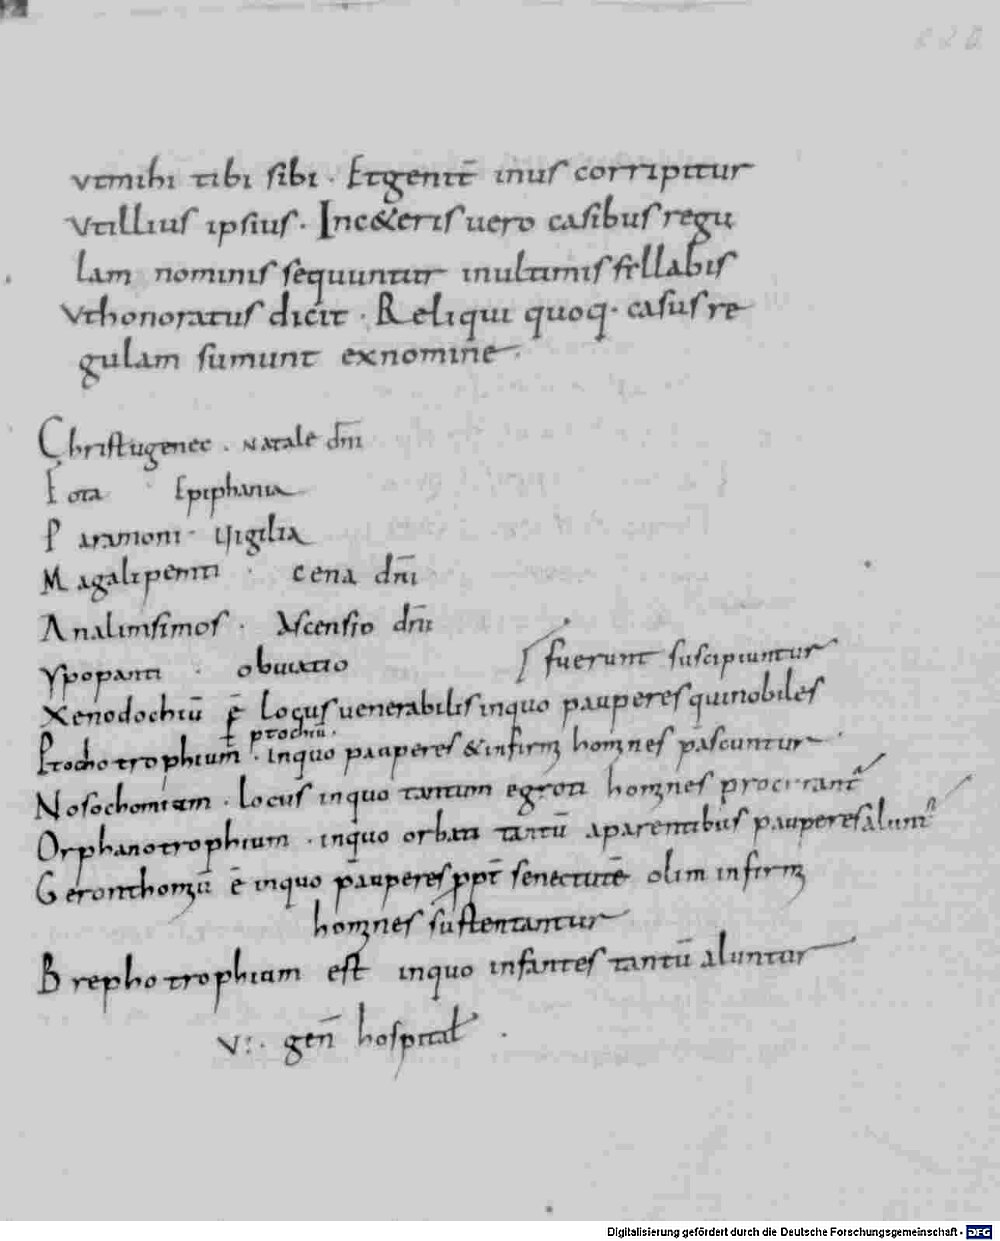 vtmihi tibi sibi · Etgenit̄ inus corripitur
vtillius ipsius · Inc&eris uero casibus regu
lam nominis sequuntur inultimis syllabis
vthonoratus dicit · Reliqui quoq· casus re
gulam sumunt exnomine ·
Christugenec · natale dm̄
Eora Epiphania
Paramoni · uigilia
Magalipenti · cena dn̄i
Analimsimos · Ascensio dn̄i
ypopanti · obuiatio
fuerunt suscipiuntur
Xenodochiū ē locus uenerabilis inquo pauperes quinobiles
ł ptochiū ·
Ptochotrophium · inquo pauperes &infirmi homines pascuntur ·
Nosochomium · locus inquo tantum egroti homines procurant᷑
Orphanotrophium · inquo orbati tantū aparentibus pauperes alunt᷑
Geronthomiū ē inquo pauperes ppt̄ senectutē olim infirmi
homines sustentantur
Brephotrophium est inquo infantes tantū aluntur
v : · gen̄ hospital
Digitalisierung gefördert durch die Deutsche Forschungsgemeinschaft - DFG